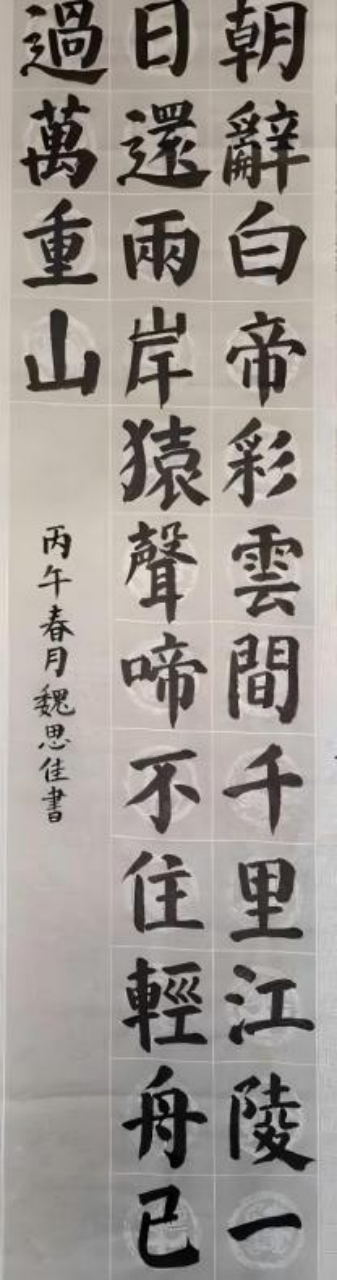 朝辭白帝彩雲間千里江陵一
日還兩岸猿聲啼不住輕舟已
過萬重山
丙午春月魏思佳書